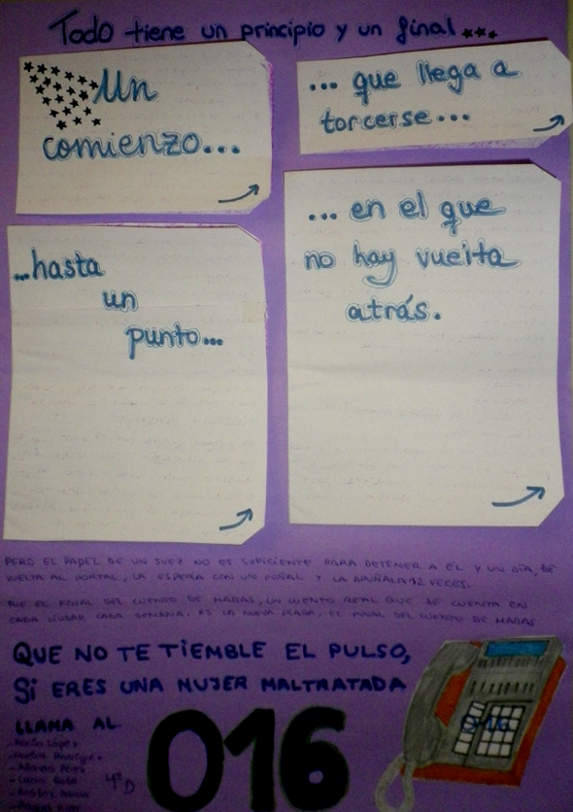 Todo tiene un principio y un final...
Un
comienzo...
... que llega a
torcerse...
...hasta
un
punto...
... en el que
no hay vuelta
atrás.
PERO EL PAPEL DE UN JUEZ NO ES SUFICIENTE PARA DETENER A ÉL Y UN DÍA, DE
VUELTA AL PORTAL, LA ESPERA CON UN PUÑAL Y LA APUÑALA 12 VECES.
FUE EL FINAL DEL CUENTO DE HADAS, UN CUENTO REAL QUE SE CUENTA EN
CADA CIUDAD CADA SEMANA. ES LA NUEVA PLAGA, EL FINAL DEL CUENTO DE HADAS
QUE NO TE TIEMBLE EL PULSO,
Si ERES UNA MUJER MALTRATADA
LLAMA AL
016
López
4ºD
016